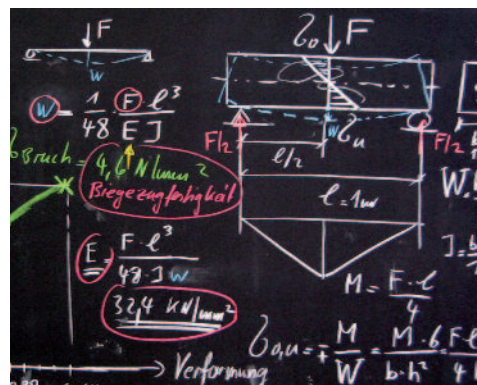 F
w
w = 1/48 · F · l³ / E J
σBruch = 4,6 N/mm²
Biegezugfestigkeit
E = F · l³ / 48 · J w
32,4 KN/mm²
Verformung
σo F
w σu
F/2 F/2
l/2
l = 1m
M = F · l / 4
σo,u = ∓ M / W = M · 6 / b · h² = F · l / 4
W
J = b